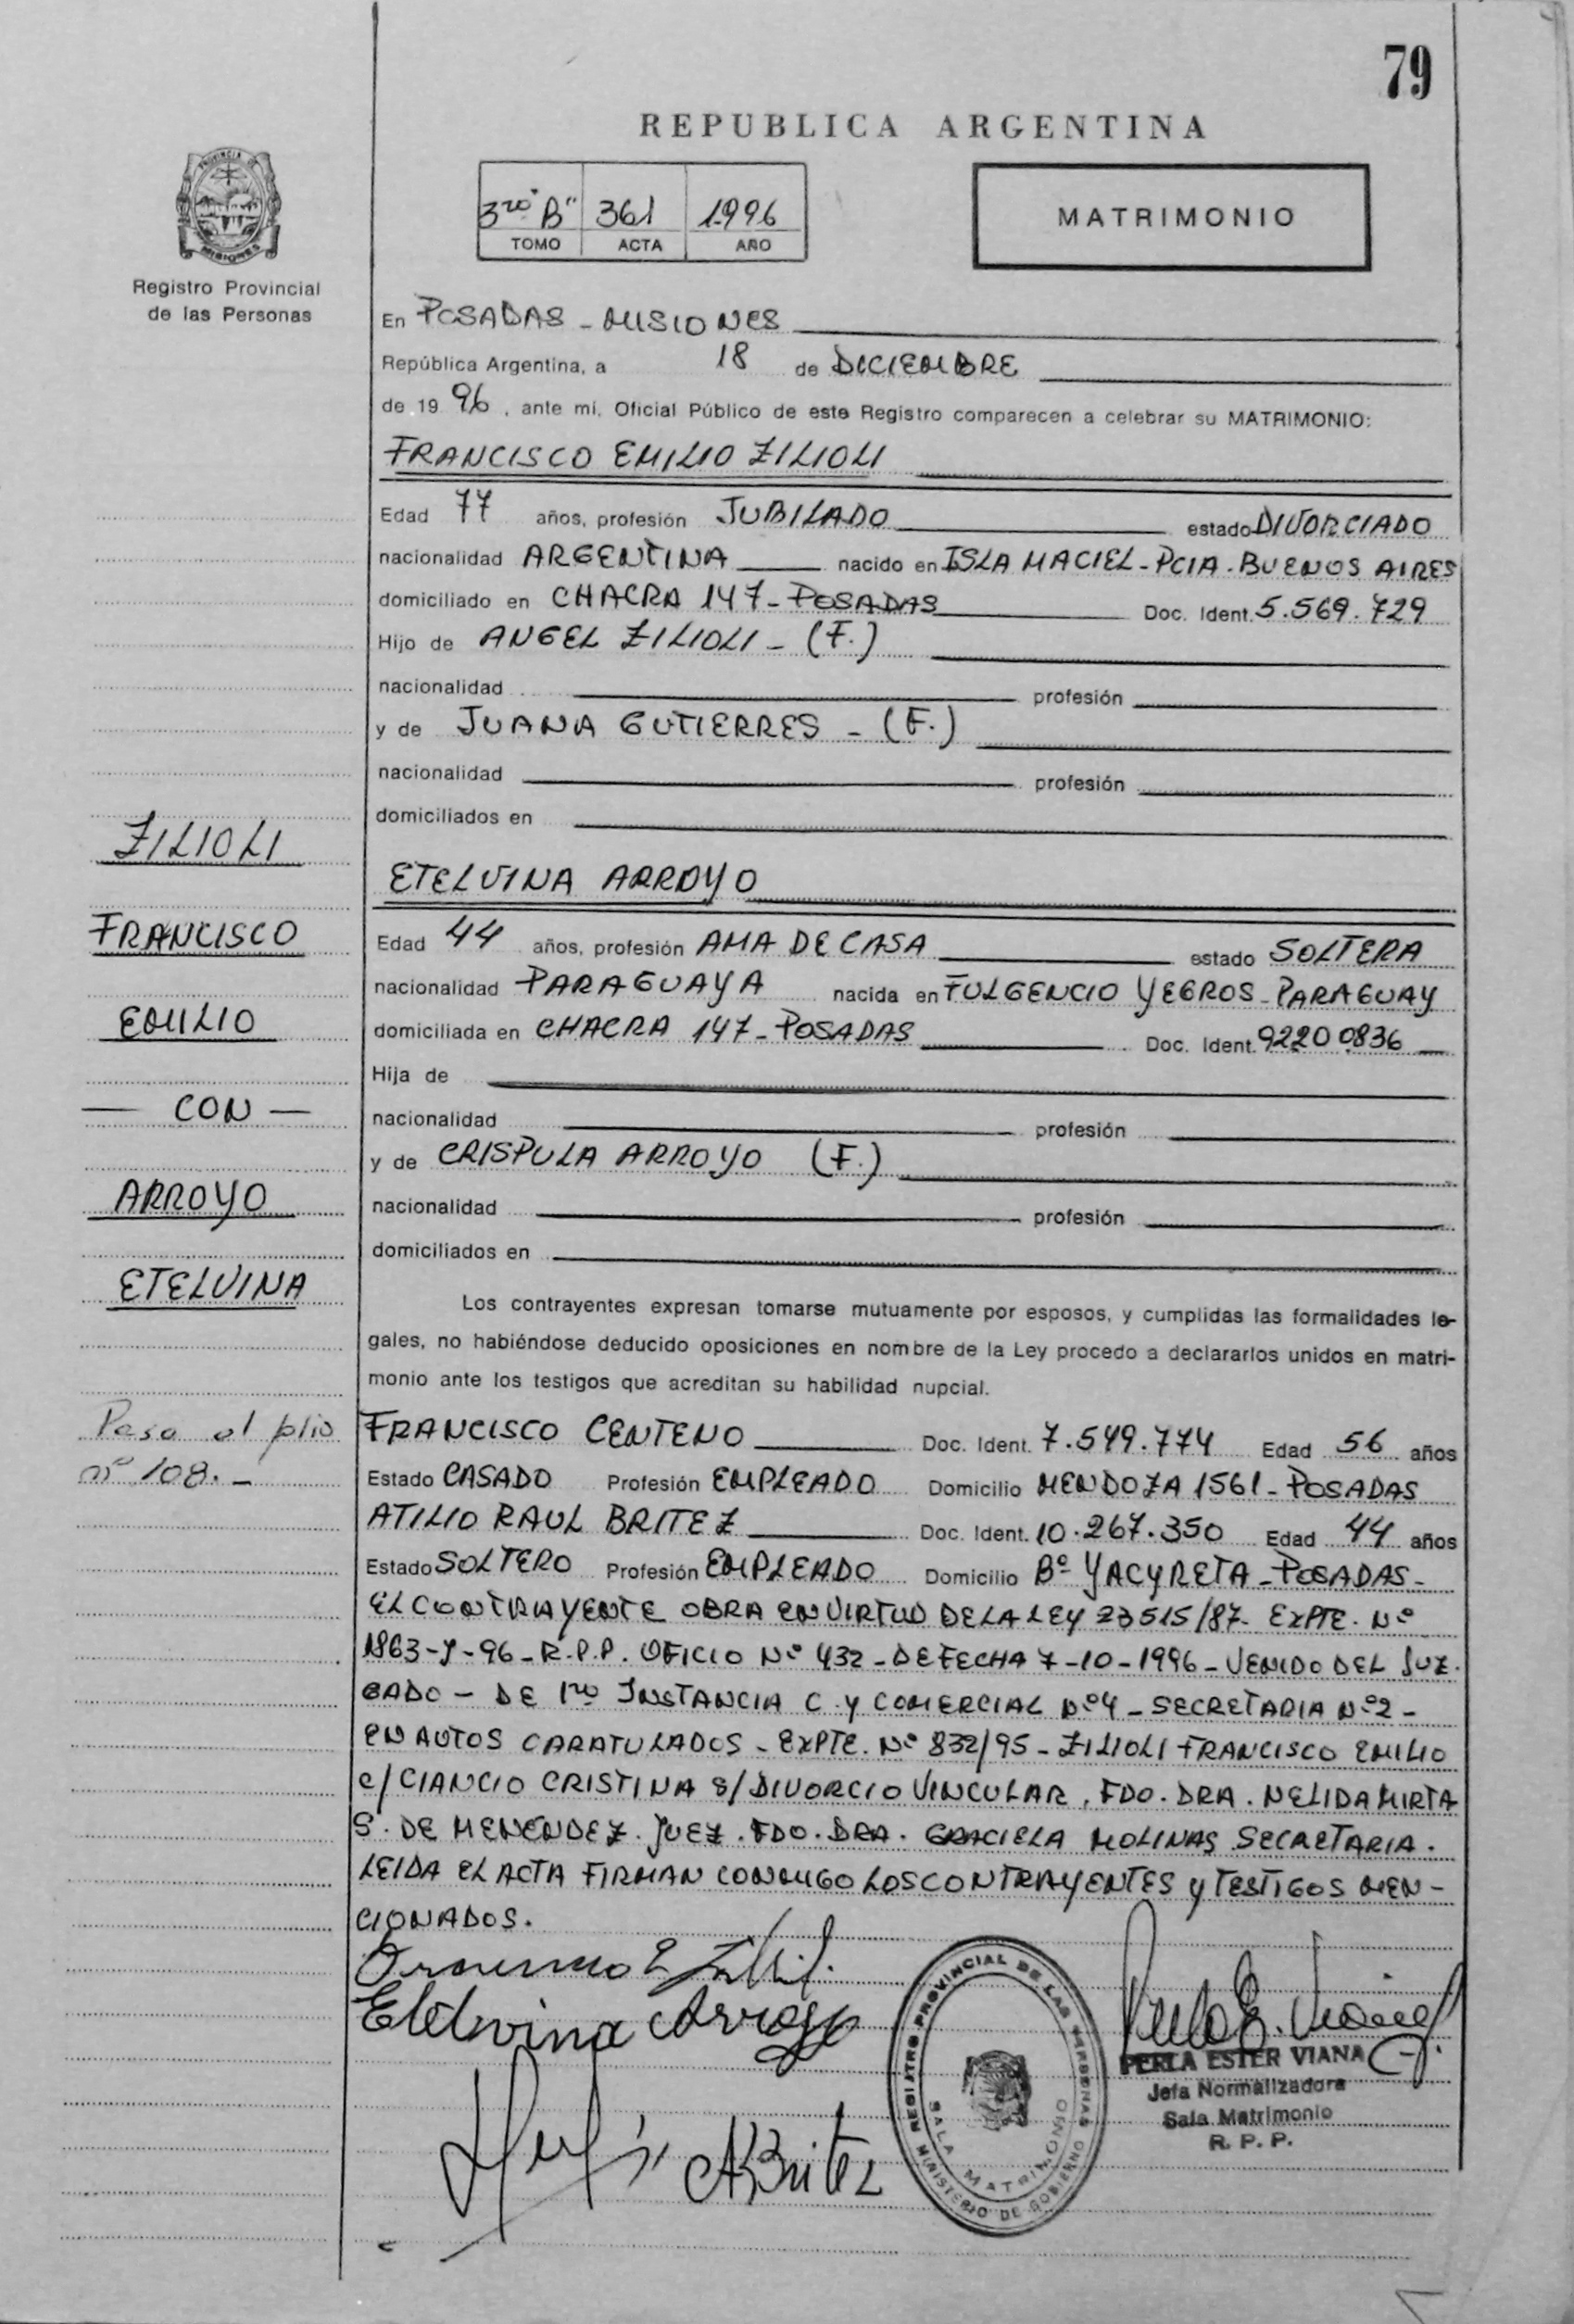 79
REPUBLICA ARGENTINA
3ro "B" 361 1996
TOMO ACTA AÑO
MATRIMONIO
PROVINCIA DE MISIONES
Registro Provincial
de las Personas
En POSADAS - MISIONES
República Argentina, a 18 de DICIEMBRE
de 19 96, ante mí, Oficial Público de este Registro comparecen a celebrar su MATRIMONIO:
FRANCISCO EMILIO ZILIOLI
Edad 77 años, profesión JUBILADO estado DIVORCIADO
nacionalidad ARGENTINA nacido en ISLA MACIEL - PCIA. BUENOS AIRES
domiciliado en CHACRA 147 - POSADAS Doc. Ident. 5.569.729
Hijo de ANGEL ZILIOLI - (F.)
nacionalidad profesión
y de JUANA GUTIERRES - (F.)
nacionalidad profesión
domiciliados en
ETELVINA ARROYO
Edad 44 años, profesión AMA DE CASA estado SOLTERA
nacionalidad PARAGUAYA nacida en FULGENCIO YEGROS - PARAGUAY
domiciliada en CHACRA 147 - POSADAS Doc. Ident. 92200836
Hija de
nacionalidad profesión
y de CRISPULA ARROYO (F.)
nacionalidad profesión
domiciliados en
Los contrayentes expresan tomarse mutuamente por esposos, y cumplidas las formalidades le-
gales, no habiéndose deducido oposiciones en nombre de la Ley procedo a declararlos unidos en matri-
monio ante los testigos que acreditan su habilidad nupcial.
FRANCISCO CENTENO Doc. Ident. 7.549.774 Edad 56 años
Estado CASADO Profesión EMPLEADO Domicilio MENDOZA 1561 - POSADAS
ATILIO RAUL BRITEZ Doc. Ident. 10.267.350 Edad 44 años
Estado SOLTERO Profesión EMPLEADO Domicilio Bº YACYRETA - POSADAS -
EL CONTRAYENTE OBRA EN VIRTUD DE LA LEY 23515/87. EXPTE. Nº
1863-J-96 - R.P.P. OFICIO Nº 432 - DE FECHA 7-10-1996 - VENIDO DEL JUZ-
GADO - DE 1ra INSTANCIA C. Y COMERCIAL Nº 4 - SECRETARIA Nº 2 -
EN AUTOS CARATULADOS - EXPTE. Nº 832/95 - ZILIOLI FRANCISCO EMILIO
C/ CIANCIO CRISTINA S/ DIVORCIO VINCULAR. FDO. DRA. NELIDA MIRTA
S. DE MENENDEZ. JUEZ. FDO. DRA. GRACIELA MOLINAS SECRETARIA.
LEIDA EL ACTA FIRMAN CONMIGO LOS CONTRAYENTES Y TESTIGOS MEN-
CIONADOS.
ZILIOLI
FRANCISCO
EMILIO
— CON —
ARROYO
ETELVINA
Pasa al plio
nº 108. -
Etelvina Arroyo
ABritez
REGISTRO PROVINCIAL DE LAS PERSONAS
SALA MATRIMONIO
MINISTERIO DE GOBIERNO
PERLA ESTER VIANA
Jefa Normalizadora
Sala Matrimonio
R. P. P.